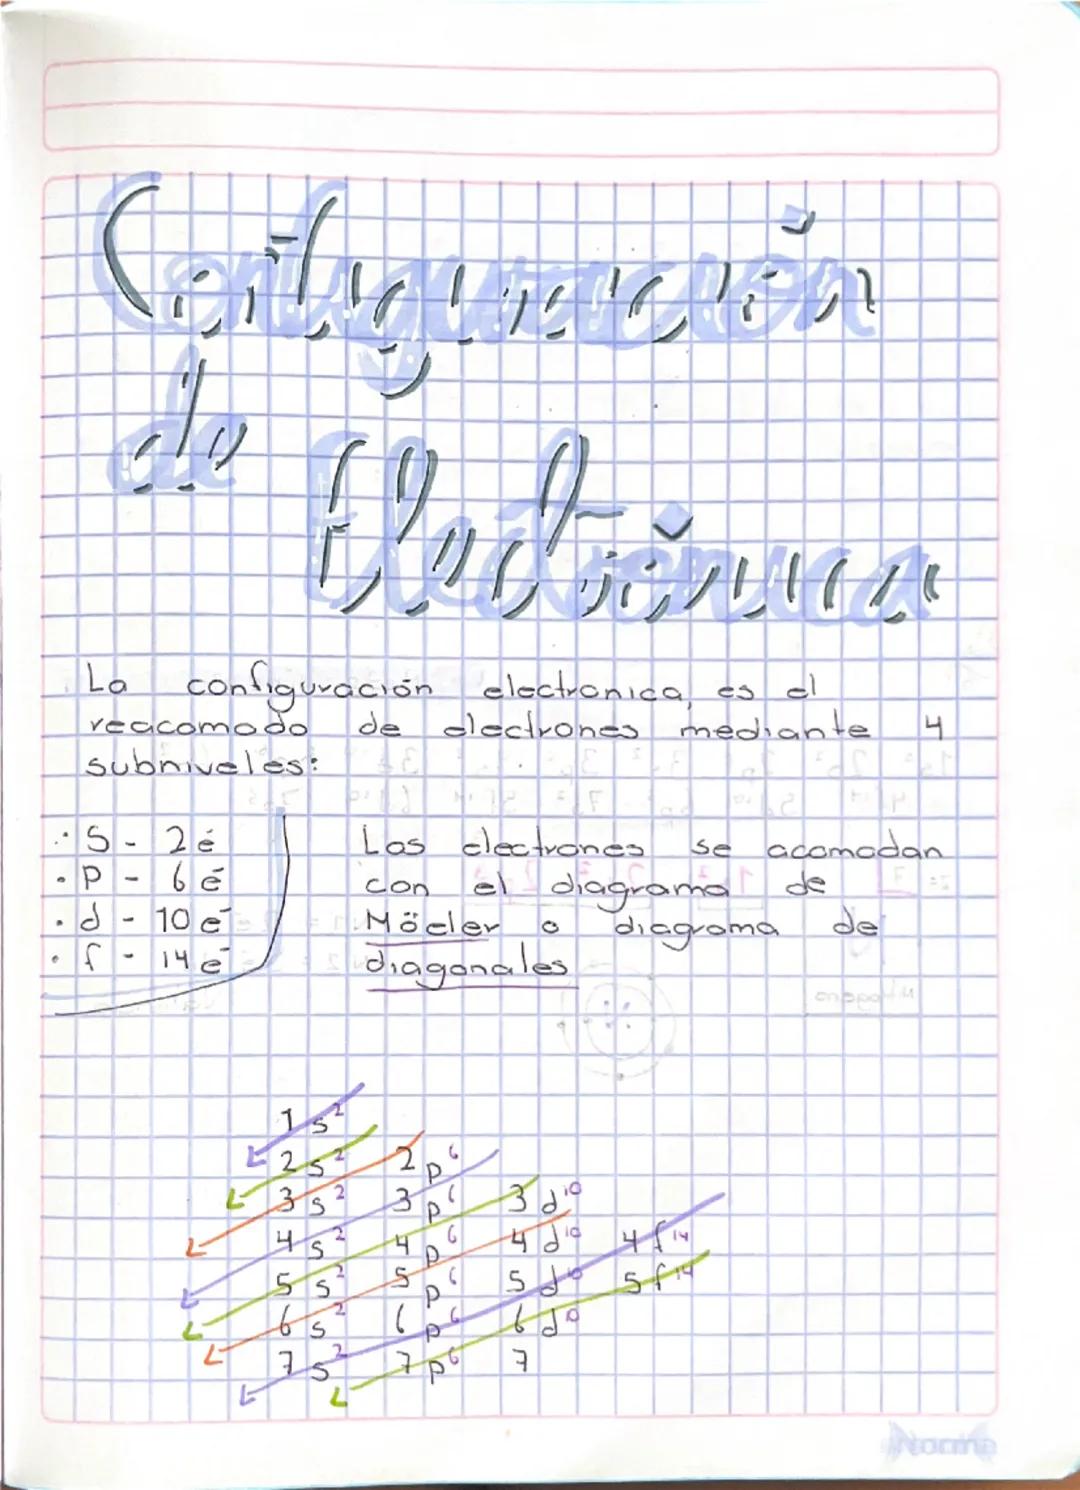 Configuración
de
Electrónica
La configuración electronica, es el
reacomodo de electrones mediante 4
subniveles:
· S - 2 é
· P - 6 e⁻
· d - 10 e⁻
· f - 14 e⁻
Los electrones se acomodan
con el diagrama de
Möeler o diagrama de
diagonales
1 s²
2 s² 2 p⁶
3 s² 3 p⁶ 3 d¹⁰
4 s² 4 p⁶ 4 d¹⁰ 4 f¹⁴
5 s² 5 p⁶ 5 d¹⁰ 5 f¹⁴
6 s² 6 p⁶ 6 d¹⁰
7 s² 7 p⁶ 7
Norma